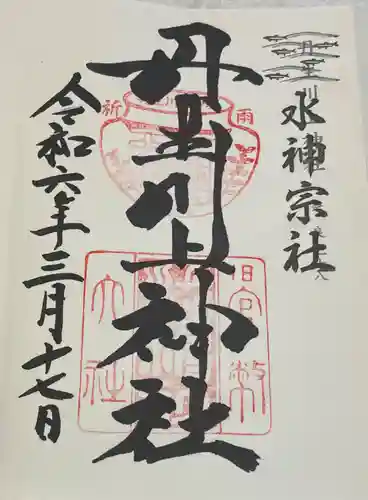 水神宗社
丹生川上神社
令和六年三月十七日
祈
雨
旧官幣
大社